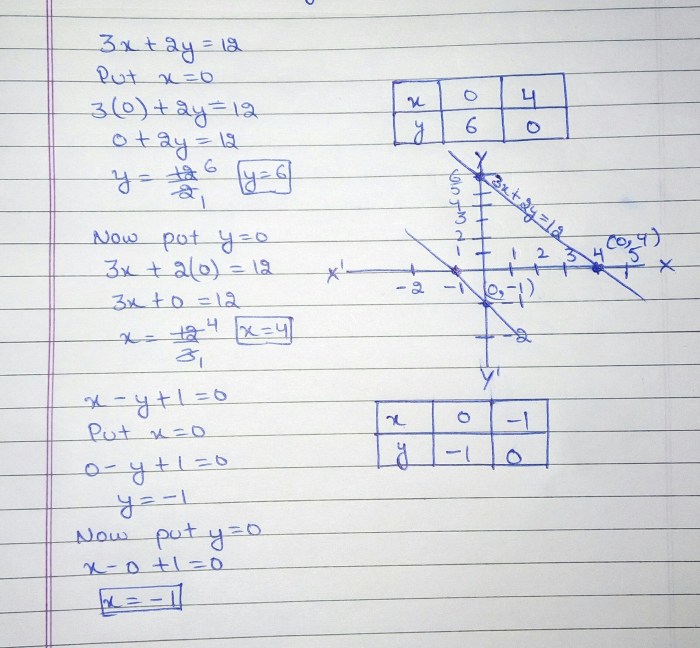 3x + 2y = 12
Put x = 0
3(0) + 2y = 12
0 + 2y = 12
y = 12/2 6 1 y = 6
Now put y = 0
3x + 2(0) = 12
3x + 0 = 12
x = 12/3 4 1 x = 4
x - y + 1 = 0
Put x = 0
0 - y + 1 = 0
y = -1
Now put y = 0
x - 0 + 1 = 0
x = -1
x 0 4
y 6 0
Y
6
5
4
3
2
1
3x + 2y = 12
(0, 4)
X' -2 -1 1 2 3 4 5 X
(0, -1)
-1
-2
Y'
x 0 -1
y -1 0